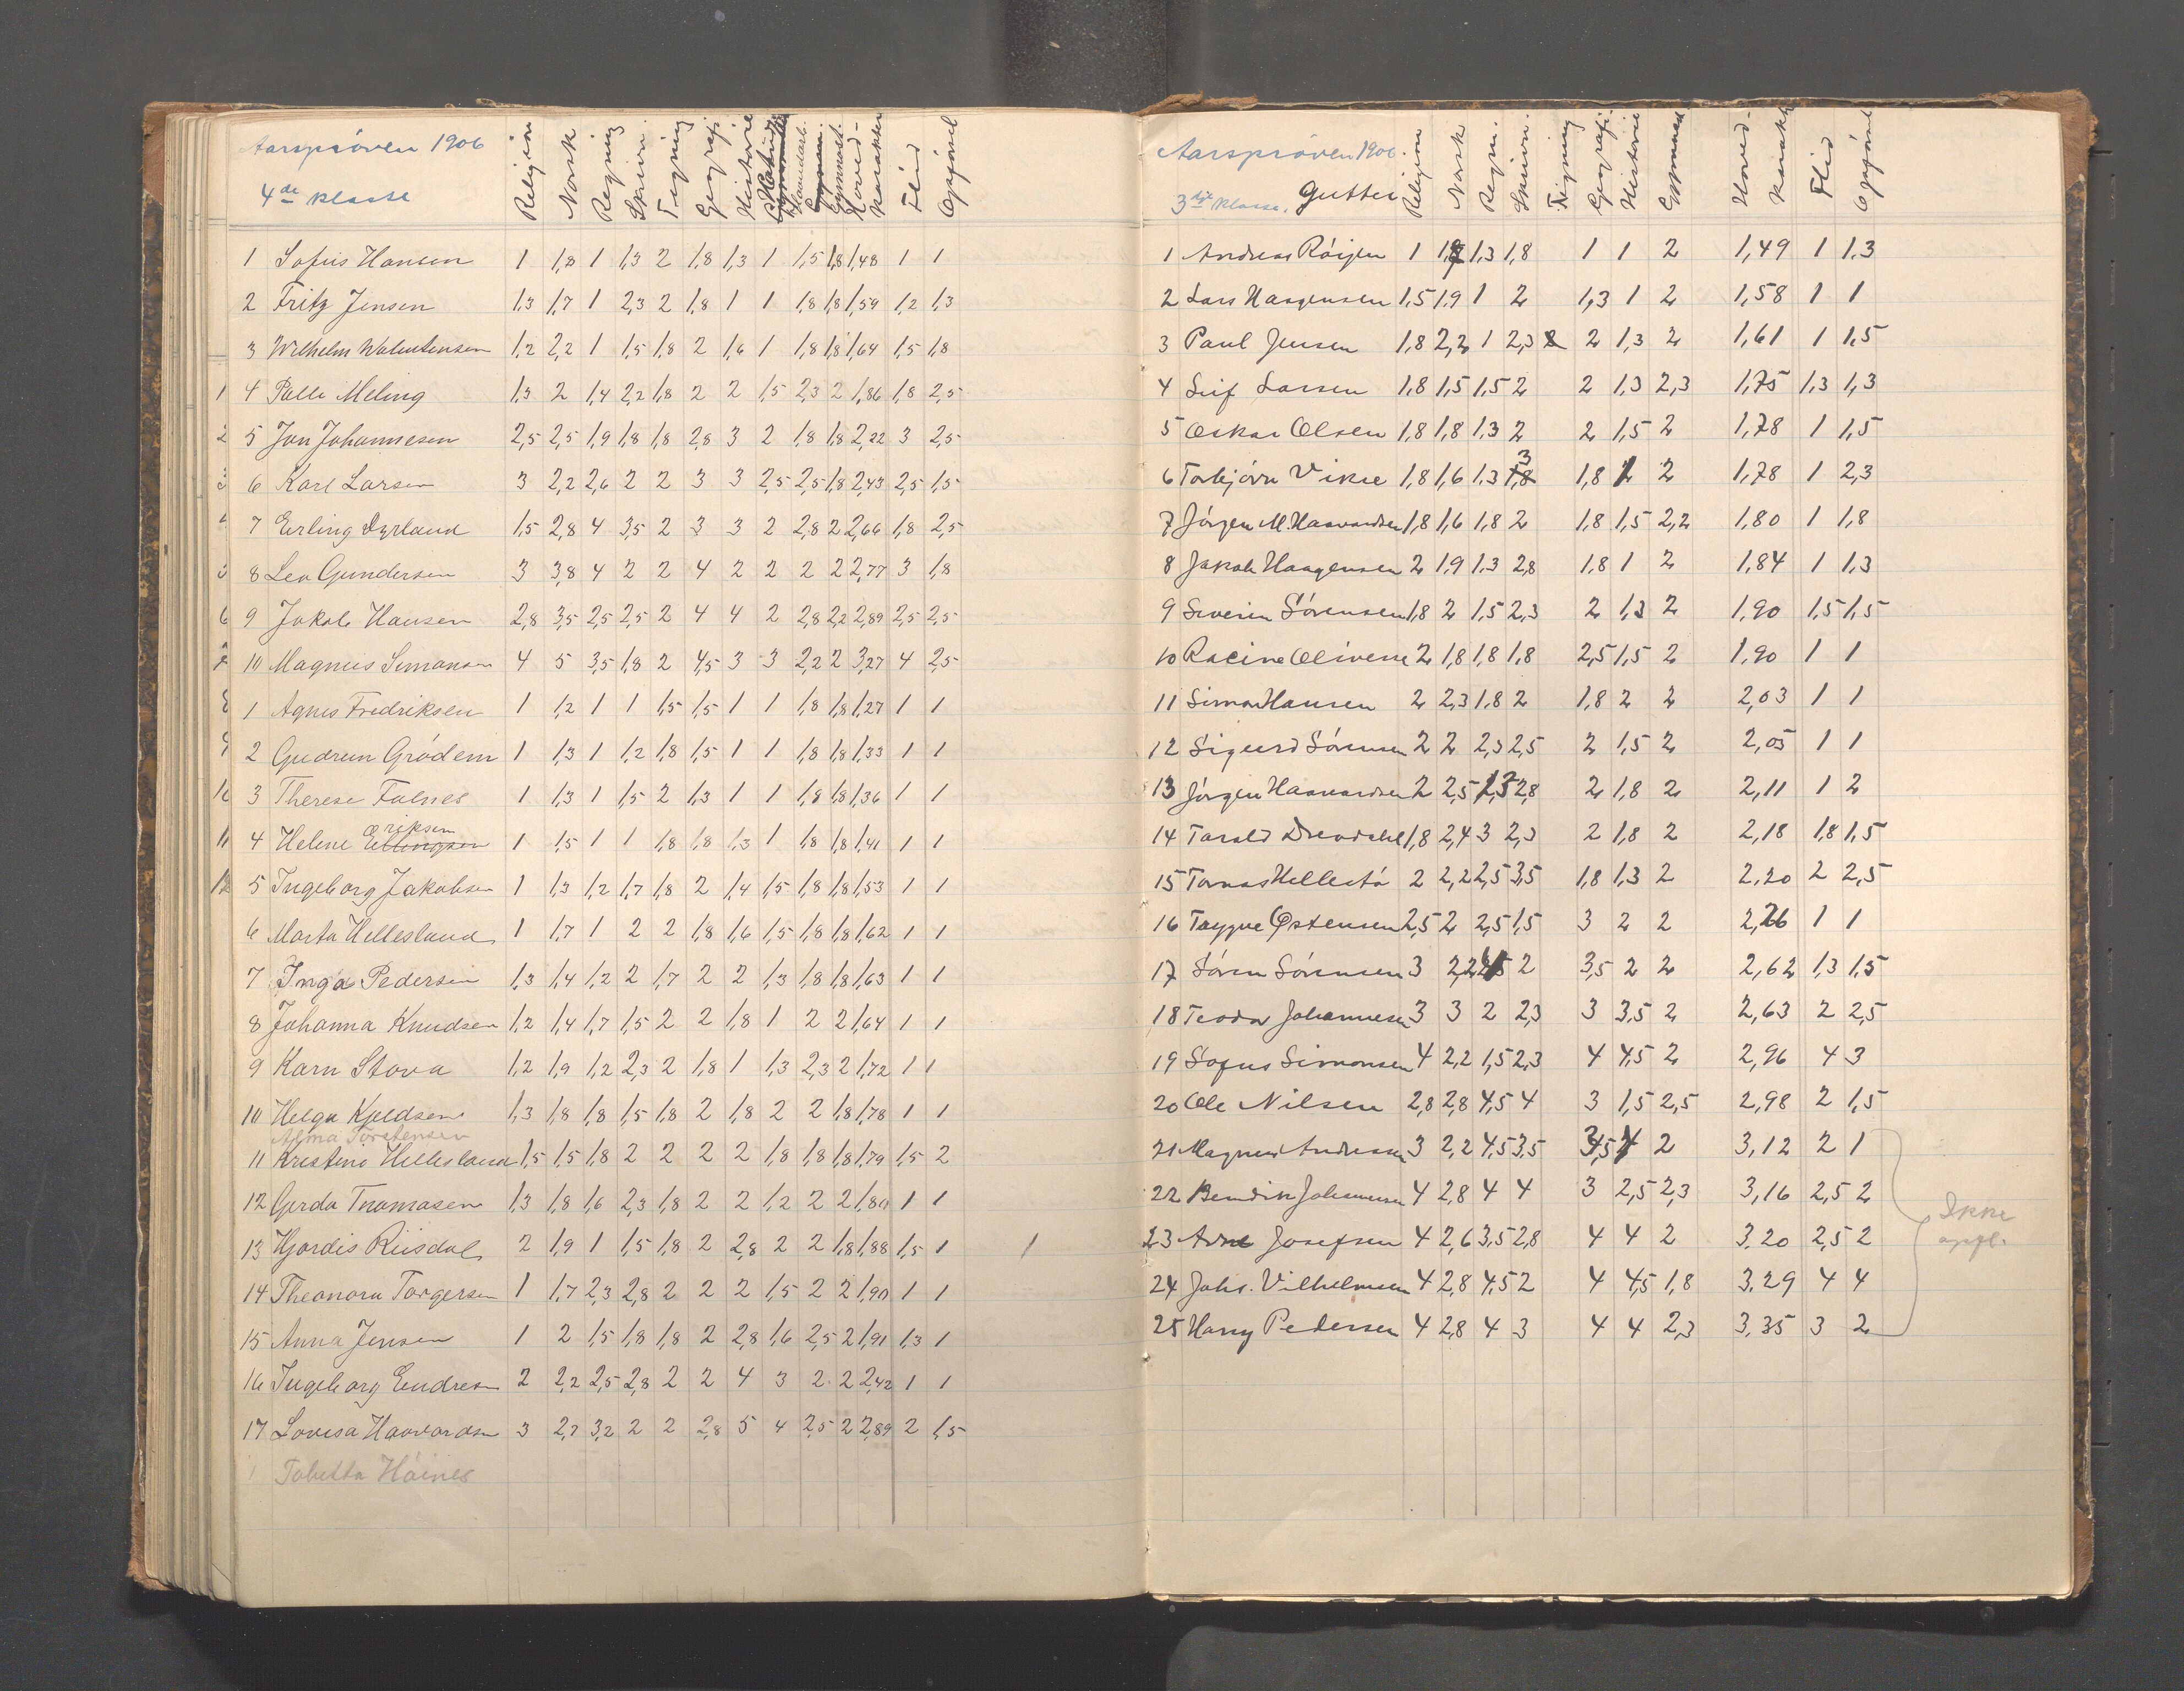 Aarsprøven 1906
4de klasse
Religion Norsk Regning Skrivn. Tegning Geografi Historie Naturk. Haandarb. Gymnast. Hoved-karakter Flid Opførsel
1 Sofus Hansen 1 1,8 1 1,3 2 1,8 1,3 1 1,5 1,8 1,48 1 1
2 Fritz Jensen 1,3 1,7 1 2,3 2 1,8 1 1 1,8 1,8 1,59 1,2 1,3
3 Wilhelm Walentensen 1,2 2,2 1 1,5 1,8 2 1,6 1 1,8 1,8 1,64 1,5 1,8
1 4 Palle Meling 1,3 2 1,4 2,2 1,8 2 2 1,5 2,3 2 1,86 1,8 2,5
2 5 Jon Johannesen 2,5 2,5 1,9 1,8 1,8 2,8 3 2 1,8 1,8 2,22 3 2,5
3 6 Karl Larsen 3 2,2 2,6 2 2 3 3 2,5 2,5 1,8 2,43 2,5 1,5
4 7 Erling Dyrland 1,5 2,8 4 3,5 2 3 3 2 2,8 2 2,66 1,8 2,5
8 Leo Gundersen 3 3,8 4 2 2 4 2 2 2 2 2,77 3 1,8
6 9 Jakob Hansen 2,8 3,5 2,5 2,5 2 4 4 2 2,8 2,2 2,89 2,5 2,5
7 10 Magnus Simonsen 4 5 3,5 1,8 2 4,5 3 3 2,2 2 3,27 4 2,5
8 1 Agnes Fredriksen 1 1,2 1 1 1,5 1,5 1 1 1,8 1,8 1,27 1 1
9 2 Gudrun Grødem 1 1,3 1 1,2 1,8 1,5 1 1 1,8 1,8 1,33 1 1
10 3 Therese Falnes 1 1,3 1 1,5 2 1,3 1 1 1,8 1,8 1,36 1 1
11 4 Helene Ellingsen Eriksen 1 1,5 1 1 1,8 1,8 1,3 1 1,8 1,8 1,41 1 1
12 5 Ingeborg Jakobsen 1 1,3 1,2 1,7 1,8 2 1,4 1,5 1,8 1,8 1,53 1 1
6 Marta Hellesland 1 1,7 1 2 2 1,8 1,6 1,5 1,8 1,8 1,62 1 1
7 Inga Pedersen 1,3 1,4 1,2 2 1,7 2 2 1,3 1,8 1,8 1,63 1 1
8 Johanna Knudsen 1,2 1,4 1,7 1,5 2 2 1,8 1 2 2 1,64 1 1
9 Karn Stova 1,2 1,9 1,2 2,3 2 1,8 1 1,3 2,3 2 1,72 1 1
10 Helga Kjeldsen 1,3 1,8 1,8 1,5 1,8 2 1,8 2 2 1,8 1,78 1 1
Alma Torstensen
11 Kristine Hellesland 1,5 1,5 1,8 2 2 2 2 1,8 1,8 1,8 1,79 1,5 2
12 Gerda Thomasen 1,3 1,8 1,6 2,3 1,8 2 2 1,2 2 2 1,80 1 1
13 Hjordis Riisdal 2 1,9 1 1,5 1,8 2 2,8 2 2 1,8 1,88 1,5 1 1
14 Theonora Torgersen 1 1,7 2,3 2,8 2 2 2 1,5 2 2 1,90 1 1
15 Anna Jensen 1 2 1,5 1,8 1,8 2 2,8 1,6 2,5 2 1,91 1,3 1
16 Ingeborg Endresen 2 2,2 2,5 2,8 2 2 4 3 2 2 2,42 1 1
17 Lovisa Haavardsen 3 2,7 3,2 2 2 2,8 5 4 2,5 2 2,89 2 1,5
1 Tabetta Høines
Aarsprøven 1906.
3die klasse. Gutter
Religion Norsk Regn. Skrivn. Tegning Geografi Historie Gymnast Hoved-karakt Flid Opførsel
1 Andreas Røisen 1 1,9 1,3 1,8 1 1 2 1,49 1 1,3
2 Lars Haagensen 1,5 1,9 1 2 1,3 1 2 1,58 1 1
3 Paul Jensen 1,8 2,2 1 2,3 2 2 1,3 2 1,61 1 1,5
4 Leif Larsen 1,8 1,5 1,5 2 2 1,3 2,3 1,75 1,3 1,3
5 Oskar Olsen 1,8 1,8 1,3 2 2 1,5 2 1,78 1 1,5
6 Torbjørn Vikse 1,8 1,6 1,3 1,8 3 1,8 1 2 1,78 1 2,3
7 Jørgen M. Haavardsen 1,8 1,6 1,8 2 1,8 1,5 2,2 1,80 1 1,8
8 Jakob Haagensen 2 1,9 1,3 2,8 1,8 1 2 1,84 1 1,3
9 Severin Sørensen 1,8 2 1,5 2,3 2 1,3 2 1,90 1,5 1,5
10 Racine Olivesen 2 1,8 1,8 1,8 2,5 1,5 2 1,90 1 1
11 Simon Hansen 2 2,3 1,8 2 1,8 2 2 2,03 1 1
12 Sigurd Sørensen 2 2 2,3 2,5 2 1,5 2 2,05 1 1
13 Jørgen Haavardsen 2 2,5 1,5 2,8 2 1,8 2 2,11 1 2
14 Tarald 1,8 2,4 3 2,3 2 1,8 2 2,18 1,8 1,5
15 Tomas Hellestø 2 2,2 2,5 3,5 1,8 1,3 2 2,20 2 2,5
16 Trygve Østensen 2,5 2 2,5 1,5 3 2 2 2,26 1 1
17 Søren Sørensen 3 2,2 2 3,5 2 2 2,62 1,3 1,5
18 Teodor Johannesen 3 3 2 2,3 3 3,5 2 2,63 2 2,5
19 Sofus Simonsen 4 2,2 1,5 2,3 4 4,5 2 2,96 4 3
20 Ole Nilsen 2,8 2,8 4,5 4 3 1,5 2,5 2,98 2 1,5
21 Magnus Andreasen 3 2,2 4,5 3,5 4 2 3,12 2 1
22 Bendik Johannesen 4 2,8 4 4 3 2,5 2,3 3,16 2,5 2
23 Arne Josefsen 4 2,6 3,5 2,8 4 4 2 3,20 2,5 2
Ikke opfl.
24 Johs. Vilhelmsen 4 2,8 4,5 2 4 4,5 1,8 3,29 4 4
25 Harry Pedersen 4 2,8 4 3 4 4 2,3 3,35 3 2